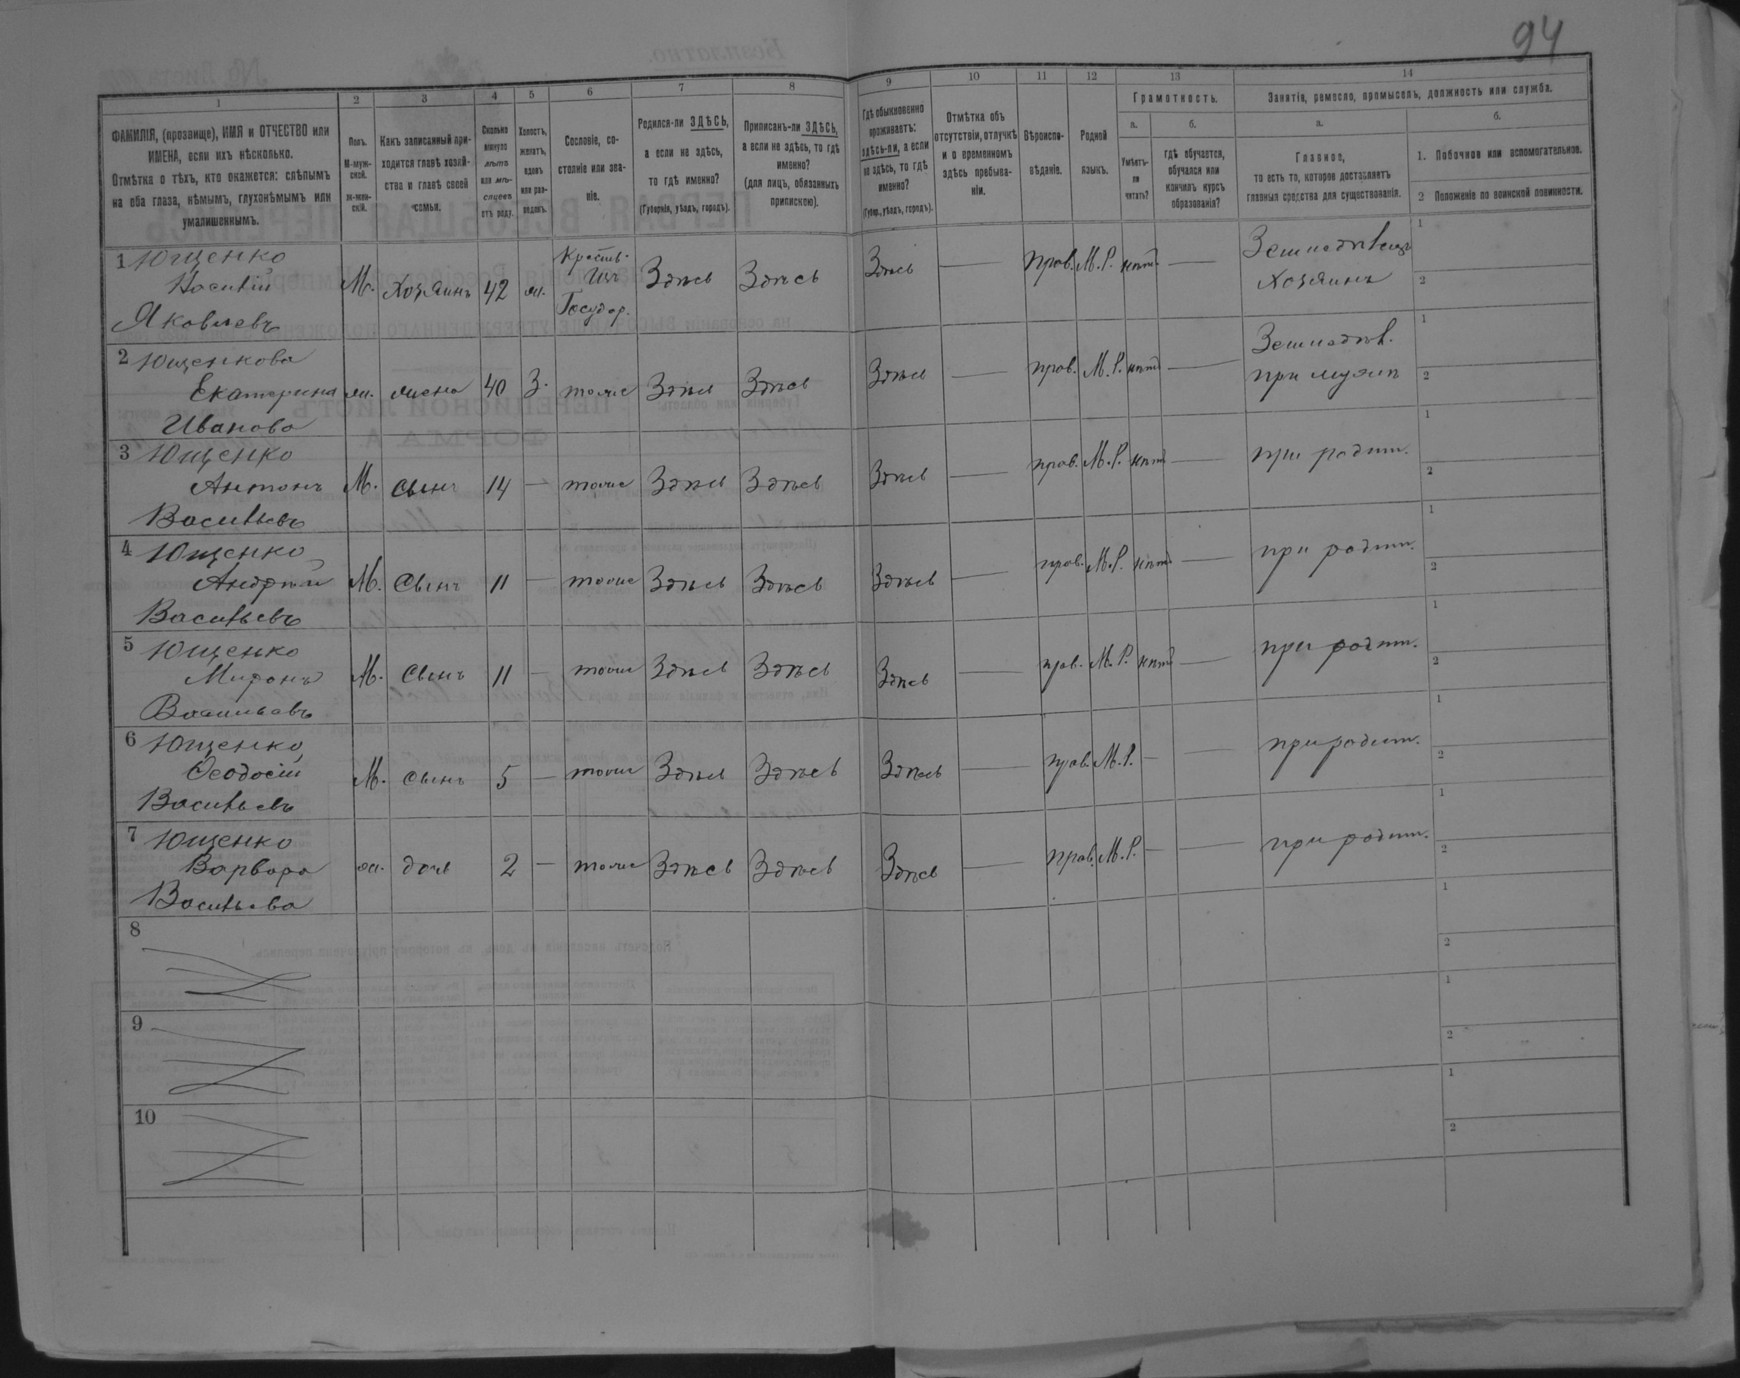 94
1 2 3 4 5 6 7 8 9 10 11 12 13 14
ФАМИЛІЯ, (прозвище), ИМЯ и ОТЧЕСТВО или
ИМЕНА, если ихъ нѣсколько.
Отмѣтка о тѣхъ, кто окажется: слѣпымъ
на оба глаза, нѣмымъ, глухонѣмымъ или
умалишеннымъ.
Полъ.
М-муж-
ской.
Ж-жен-
скій.
Какъ записанный при-
ходится главѣ хозяй-
ства и главѣ своей
семьи.
Сколько
минуло
лѣтъ
или мѣ-
сяцевъ
отъ роду.
Холостъ,
женатъ,
вдовъ
или раз-
веденъ.
Сословіе, со-
стояніе или зва-
ніе.
Родился-ли ЗДѢСЬ,
а если не здѣсь,
то гдѣ именно?
(Губернія, уѣздъ, городъ).
Приписанъ-ли ЗДѢСЬ,
а если не здѣсь, то гдѣ
именно?
(для лицъ, обязанныхъ
припискою).
Гдѣ обыкновенно
проживаетъ:
здѣсь-ли, а если
не здѣсь, то гдѣ
именно?
(Губер., уѣздъ, городъ).
Отмѣтка объ
отсутствіи, отлучкѣ
и о временномъ
здѣсь пребыва-
ніи.
Вѣроиспо-
вѣданіе.
Родной
языкъ.
Грамотность.
а.
Умѣетъ-
ли
читать?
б.
гдѣ обучается,
обучался или
кончилъ курсъ
образованія?
Занятія, ремесло, промыселъ, должность или служба.
а.
Главное,
то есть то, которое доставляетъ
главныя средства для существованія.
б.
1. Побочное или вспомогательное.
2 Положеніе по воинской повинности.
1 Ющенко
Василій
Яковлевъ
М. Хозяинъ 42 ж. Крестья- Здѣсь Здѣсь Здѣсь — прав. М.Р. нѣтъ — Земледѣлецъ 1
Государ. Хозяинъ 2
2 Ющенкова
Екатерина
Иванова
ж. жена 40 З. тоже Здѣсь Здѣсь Здѣсь — прав. М.Р. нѣтъ — Земледѣл. 1
при мужѣ 2
3 Ющенко
Антонъ
Васильевъ
М. сынъ 14 — тоже Здѣсь Здѣсь Здѣсь — прав. М.Р. нѣтъ — при родит. 1
2
4 Ющенко
Андрей
Васильевъ
М. Сынъ 11 — тоже Здѣсь Здѣсь Здѣсь — прав. М.Р. нѣтъ — при родит. 1
2
5 Ющенко
Миронъ
Васильевъ
М. Сынъ 11 — тоже Здѣсь Здѣсь Здѣсь — прав. М.Р. нѣтъ — при родит. 1
2
6 Ющенко
Ѳеодосій
Васильевъ
М. Сынъ 5 — тоже Здѣсь Здѣсь Здѣсь — прав. М.Р. — — при родит. 1
2
7 Ющенко
Варвара
Васильева
ж. дочь 2 — тоже Здѣсь Здѣсь Здѣсь — прав. М.Р. — — при родит. 1
2
8 1
2
9 1
2
10 1
2